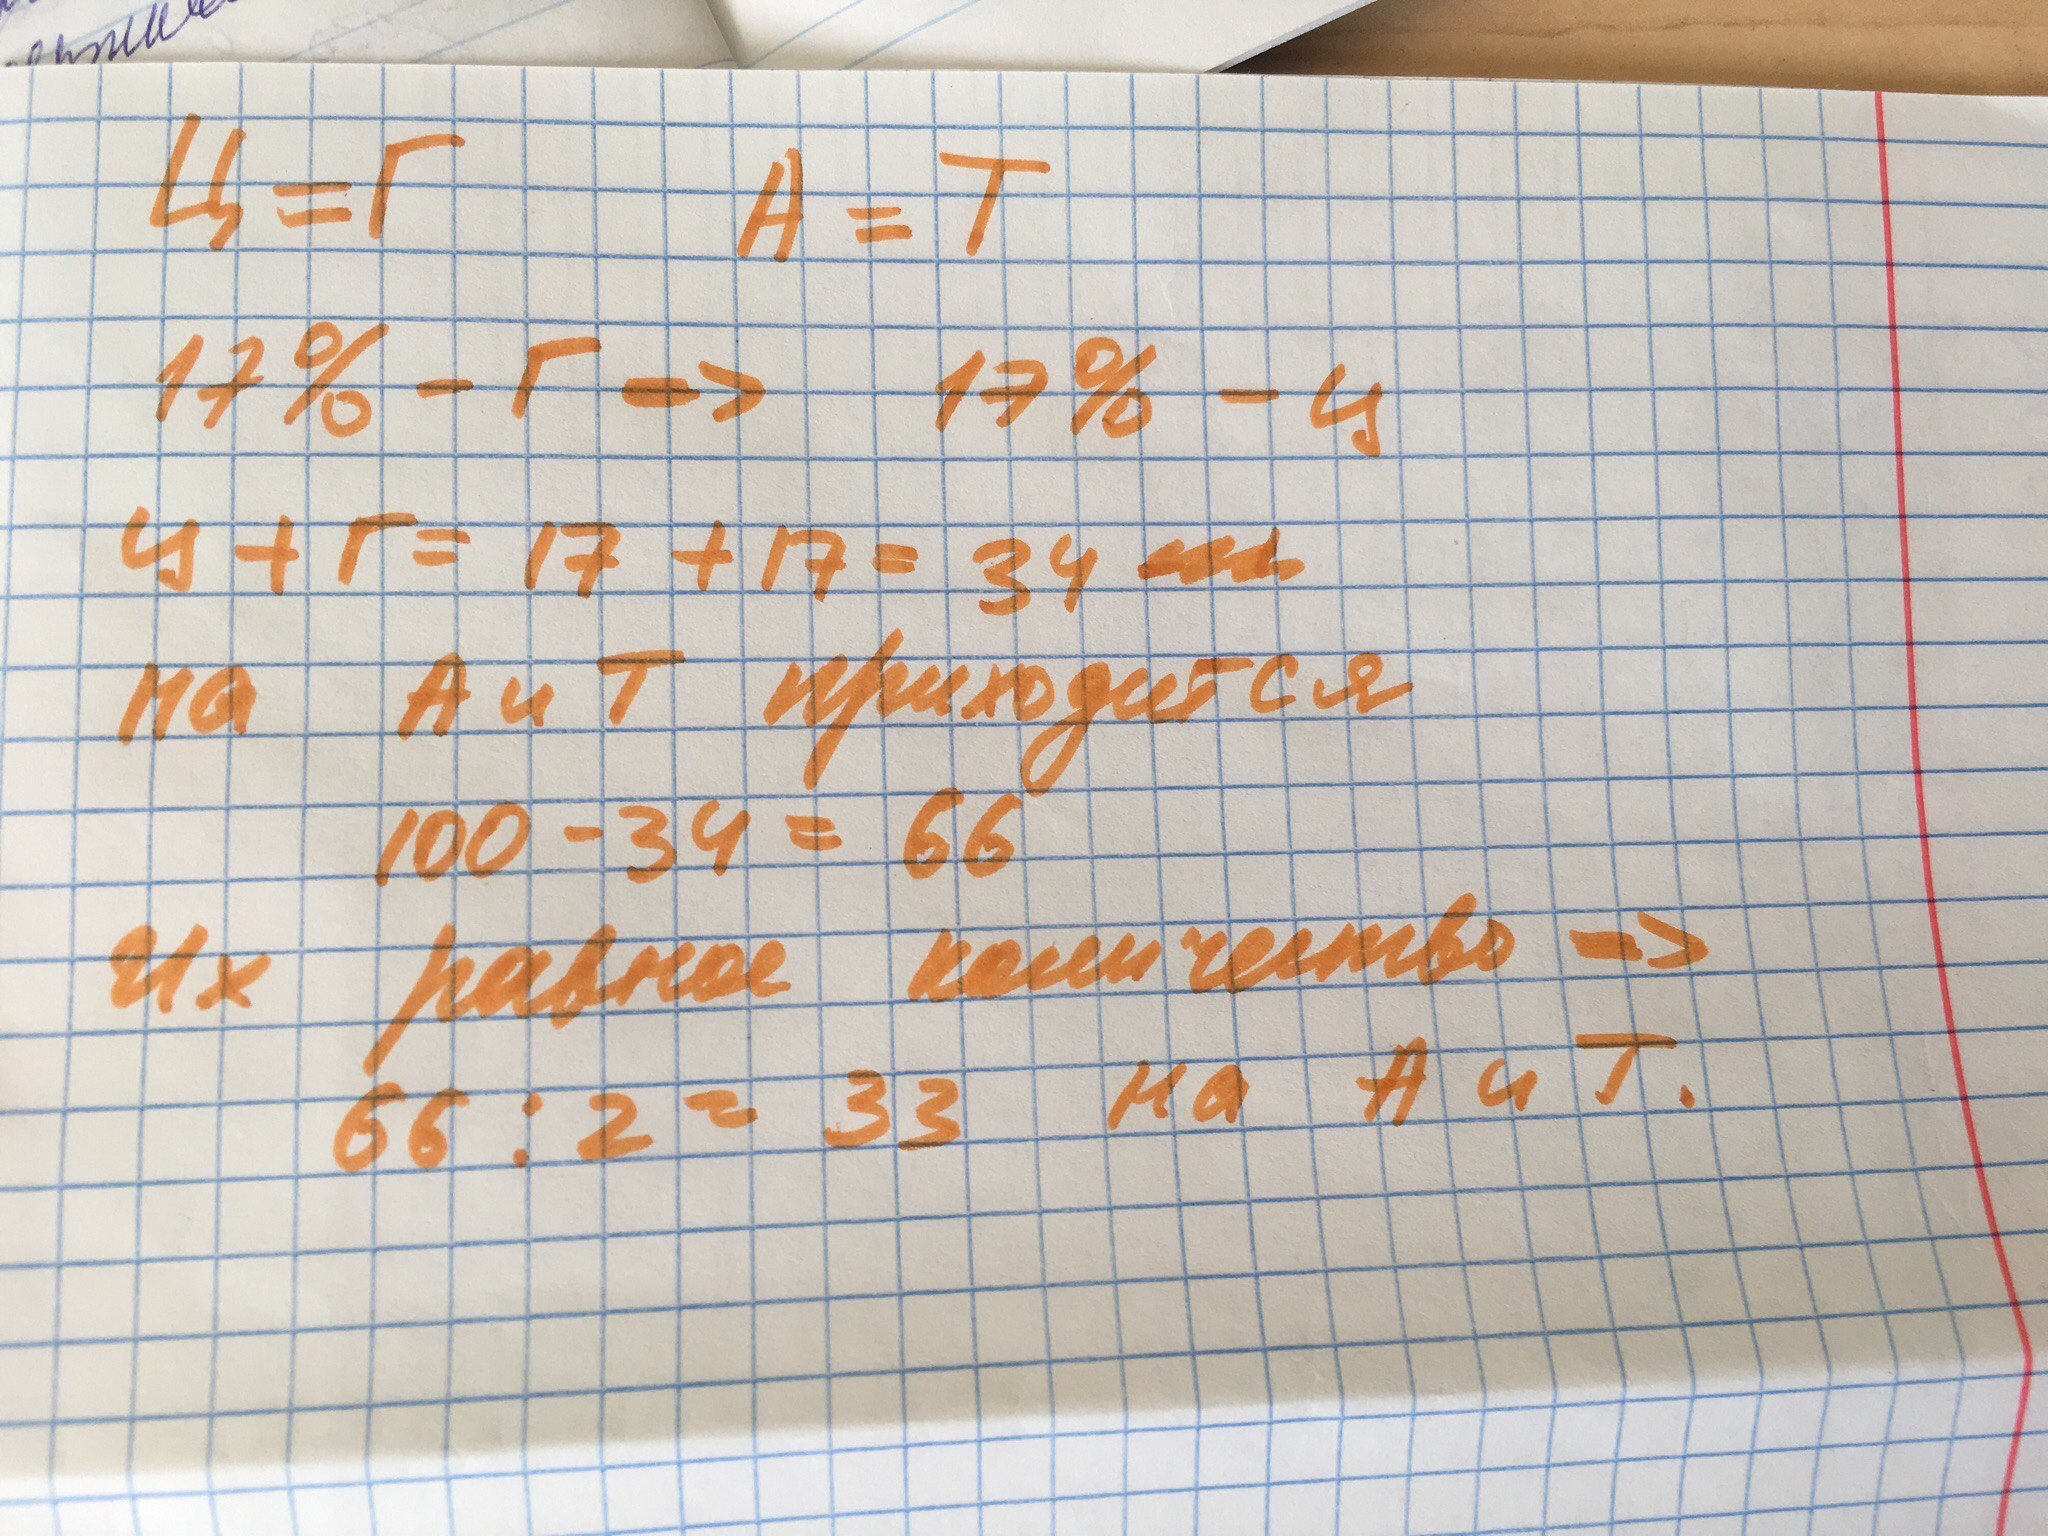 Ц = Г А = Т
17% - Г -> 17% - Ц
Ц + Г = 17 + 17 = 34
на А и Т приходится
100 - 34 = 66
Их равное количество ->
66 : 2 = 33 на А и Т.